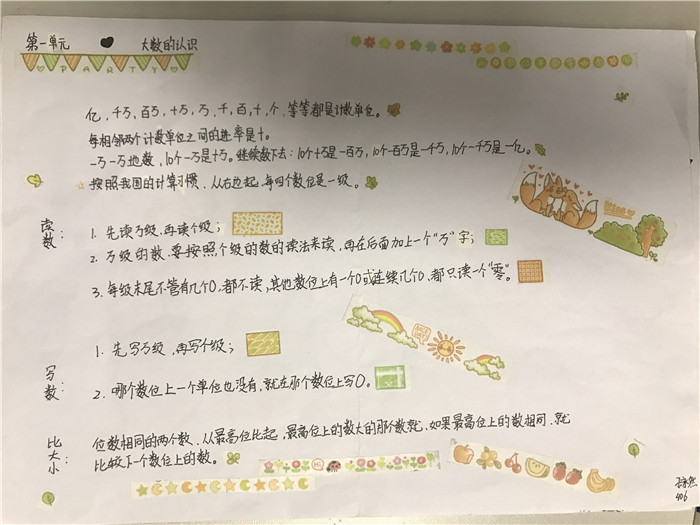 第一单元 大数的认识
PARTY
亿，千万，百万，十万，万，千，百，十，个，等等都是计数单位。
每相邻两个计数单位之间的进率是十。
一万一万地数，10个一万是十万。继续数下去：10个十万是一百万，10个一百万是一千万，10个一千万是一亿。
按照我国的计算习惯，从右边起，每四个数位是一级。
读数：
1. 先读万级，再读个级；
2. 万级的数，要按照个级的数的读法来读，再在后面加上一个“万”字；
3. 每级末尾不管有几个0，都不读，其他数位上有一个0或连续几个0，都只读一个“零”。
写数：
1. 先写万级，再写个级；
2. 哪个数位上一个单位也没有，就在那个数位上写0。
比大小：
位数相同的两个数，从最高位比起，最高位上的数大的那个数就，如果最高位上的数相同，就
比较下一个数位上的数。
406